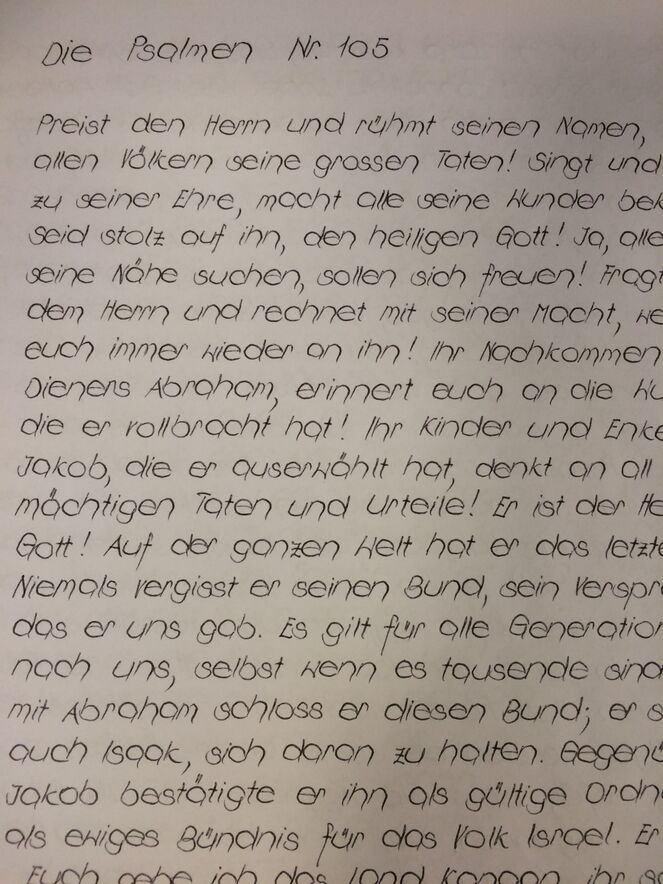 Die Psalmen Nr. 105
Preist den Herrn und rühmt seinen Namen,
allen Völkern seine grossen Taten! Singt und
zu seiner Ehre, macht alle seine Wunder bek
Seid stolz auf ihn, den heiligen Gott! Ja, alle
seine Nähe suchen, sollen sich freuen! Fragt
dem Herrn und rechnet mit seiner Macht, we
euch immer wieder an ihn! Ihr Nachkommen
Dieners Abraham, erinnert euch an die Wu
die er vollbracht hat! Ihr Kinder und Enke
Jakob, die er auserwählt hat, denkt an all
mächtigen Taten und Urteile! Er ist der He
Gott! Auf der ganzen Welt hat er das letzte
Niemals vergisst er seinen Bund, sein Verspr
das er uns gab. Es gilt für alle Generation
nach uns, selbst wenn es tausende sind
mit Abraham schloss er diesen Bund; er s
auch Isaak, sich daran zu halten. Gegenü
Jakob bestätigte er ihn als gültige Ordn
als ewiges Bündnis für das Volk Israel. Er
Euch gebe ich das Land Kanaan, ihr so